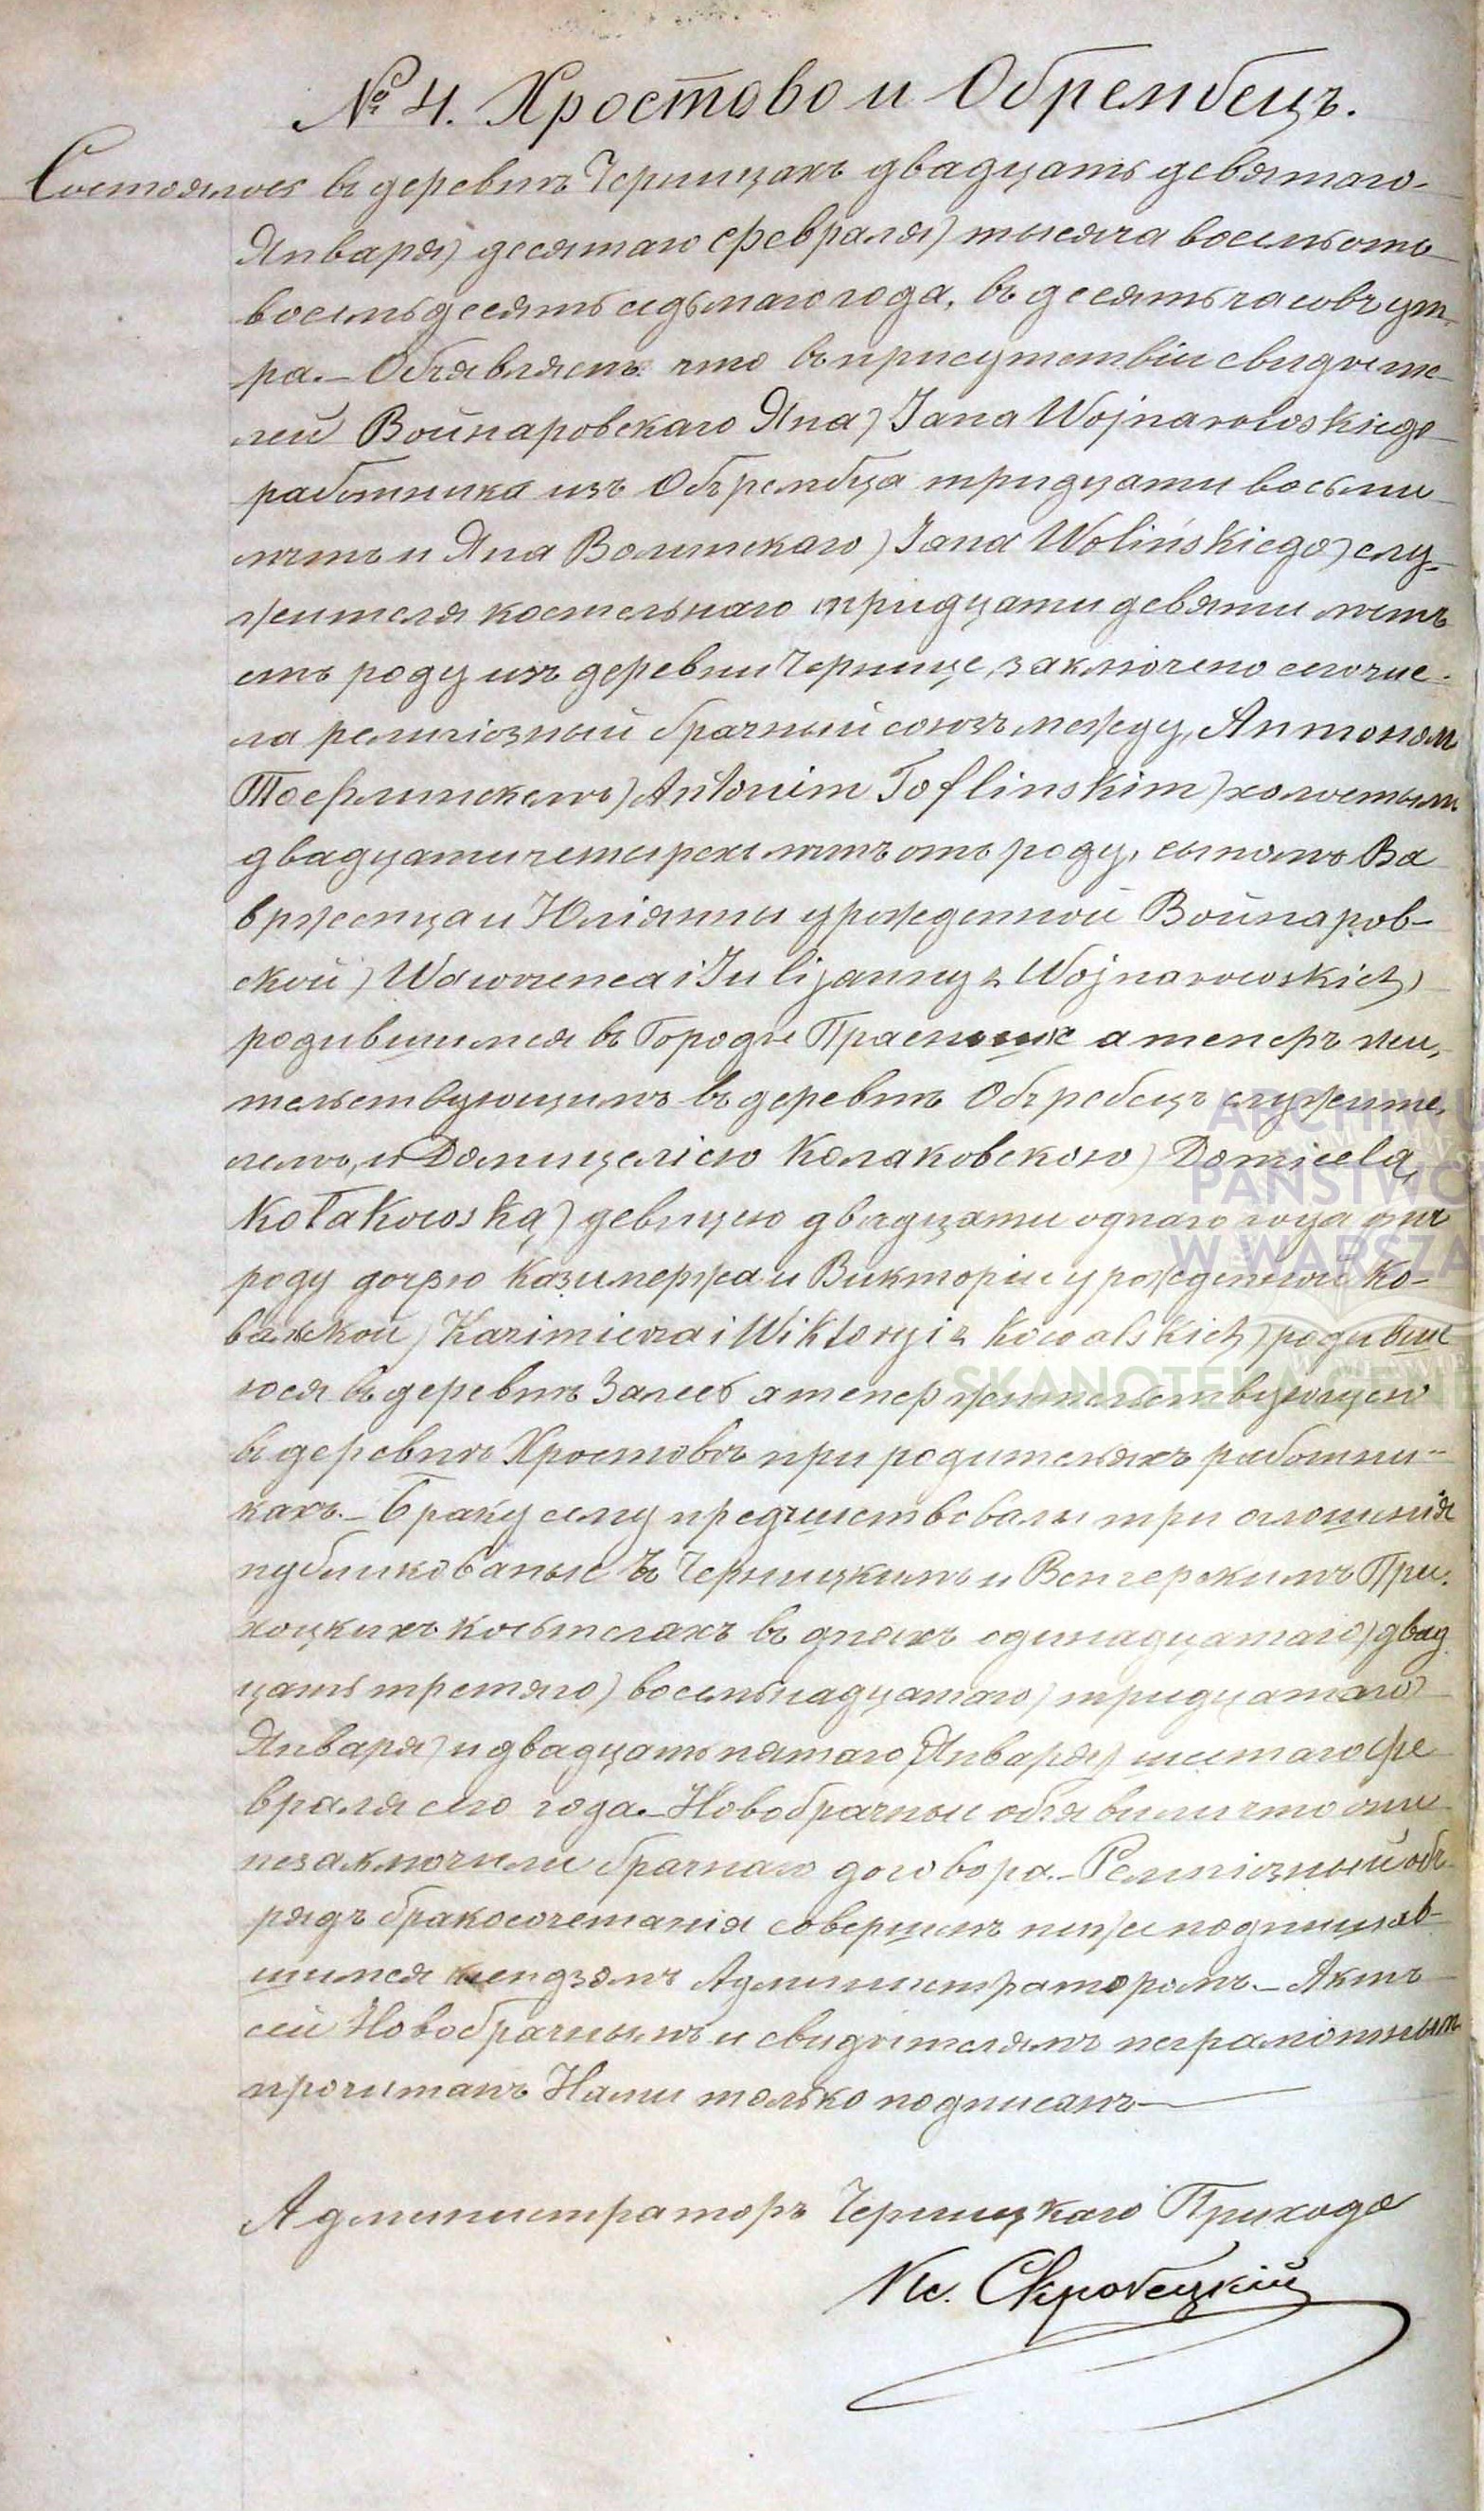 № 4. Хростово и Обрембецъ.
Состоялось въ деревнѣ Черницахъ двадцать девятаго
Января) десятаго февраля) тысяча восемьсотъ
восемьдесятъ седьмаго года, въ десять часовъ ут-
ра.- Объявляемъ что въ присутствіи свидѣте-
лей Войнаровскаго Яна) Jana Wojnarowskiego
работника изъ Обрембца тридцати восьми
лѣтъ и Яна Волинскаго) Jana Wolińskiego) слу-
жителя костельнаго тридцати девяти лѣтъ
отъ роду изъ деревни Чернице, заключено сего чис-
ла религіозный брачный союзъ между, Антоном
Тофлинскемъ) Antonim Toflinskim) холостым
двадцати четырехъ лѣтъ отъ роду, сыномъ Ва
вржеңца и Юліянны урожденной Войнаров-
ской) Wawrzenca i Julijanny z Wojnarowskich)
родившимся въ Городѣ Праснише а теперъ жи-
тельствующимъ въ деревнѣ Обребецъ служите-
лемъ, и Доміцелісю Колаковскою) Domicela
Kołakowską) девицею двадцати одного года отъ
роду дочрю Казимержа и Викторіи урожденной Ко-
вальской) Kazimierza i Wiktoryi z Kowalskich) родивше
юся въ деревнѣ Залесе а теперъ жительствующею
въ деревнѣ Хростовѣ при родителяхъ работни-
кахъ.- Браку сему предшествовали три оглошенія
публикованые въ Черницкимъ и Венгерскимъ При-
хоцкихъ костелахъ въ дняхъ одинадцатаго) двад
цать третяго) восемьнадцатаго) тридцатаго
Января) и двадцать пятаго Января) шестаго фе
враля сего года.- Новобрачные объявили что они
незаключили брачнаго договора.- Религіозный об-
рядъ бракосочетанія совершилъ нижеподписав-
шимся ксендзомъ Администраторомъ.- Актъ
сей Новобрачнымъ и свидѣтелямъ неграмотным
прочитанъ Нами только подписанъ
Администраторъ Черницкаго Прихода
Кс. Скробецкій
ARCHIWU
PAŃSTWO
W WARSZA
SKANOTEKA GENE